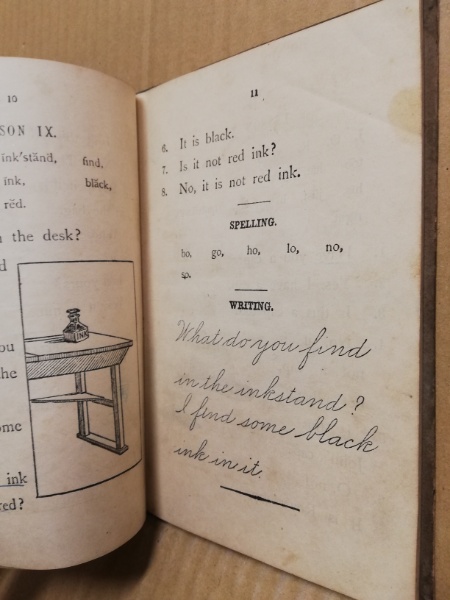 10
SON IX.
ink'stănd, find.
ink, blăck,
rĕd.
the desk?
ou
the
ome
ink
red?
INK
11
6. It is black.
7. Is it not red ink?
8. No, it is not red ink.
SPELLING.
bo, go, ho, lo, no,
so.
WRITING.
What do you find
in the inkstand?
I find some black
ink in it.